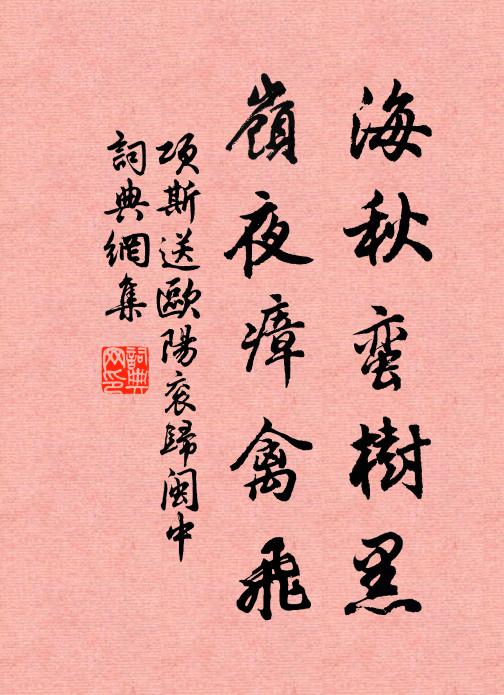 海秋蛮樹黑
嶺夜瘴禽飛
項斯送歐陽衮歸閩中
詞典網集
詞典網印